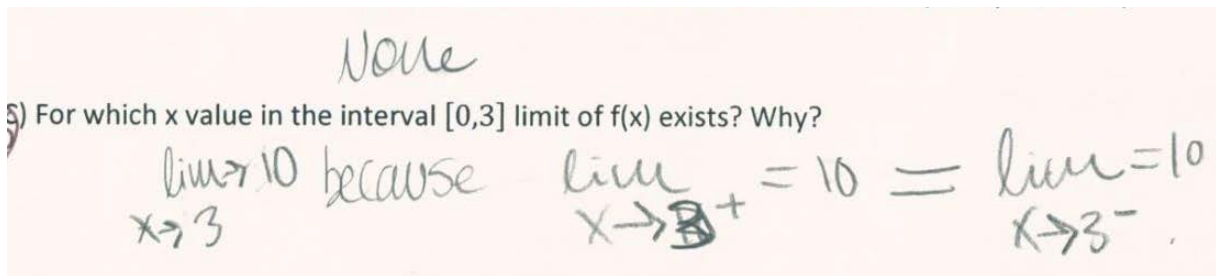 None
5) For which x value in the interval [0,3] limit of f(x) exists? Why?
lim→10 because lim = 10 = lim=10
x→3 x→3+ x→3-